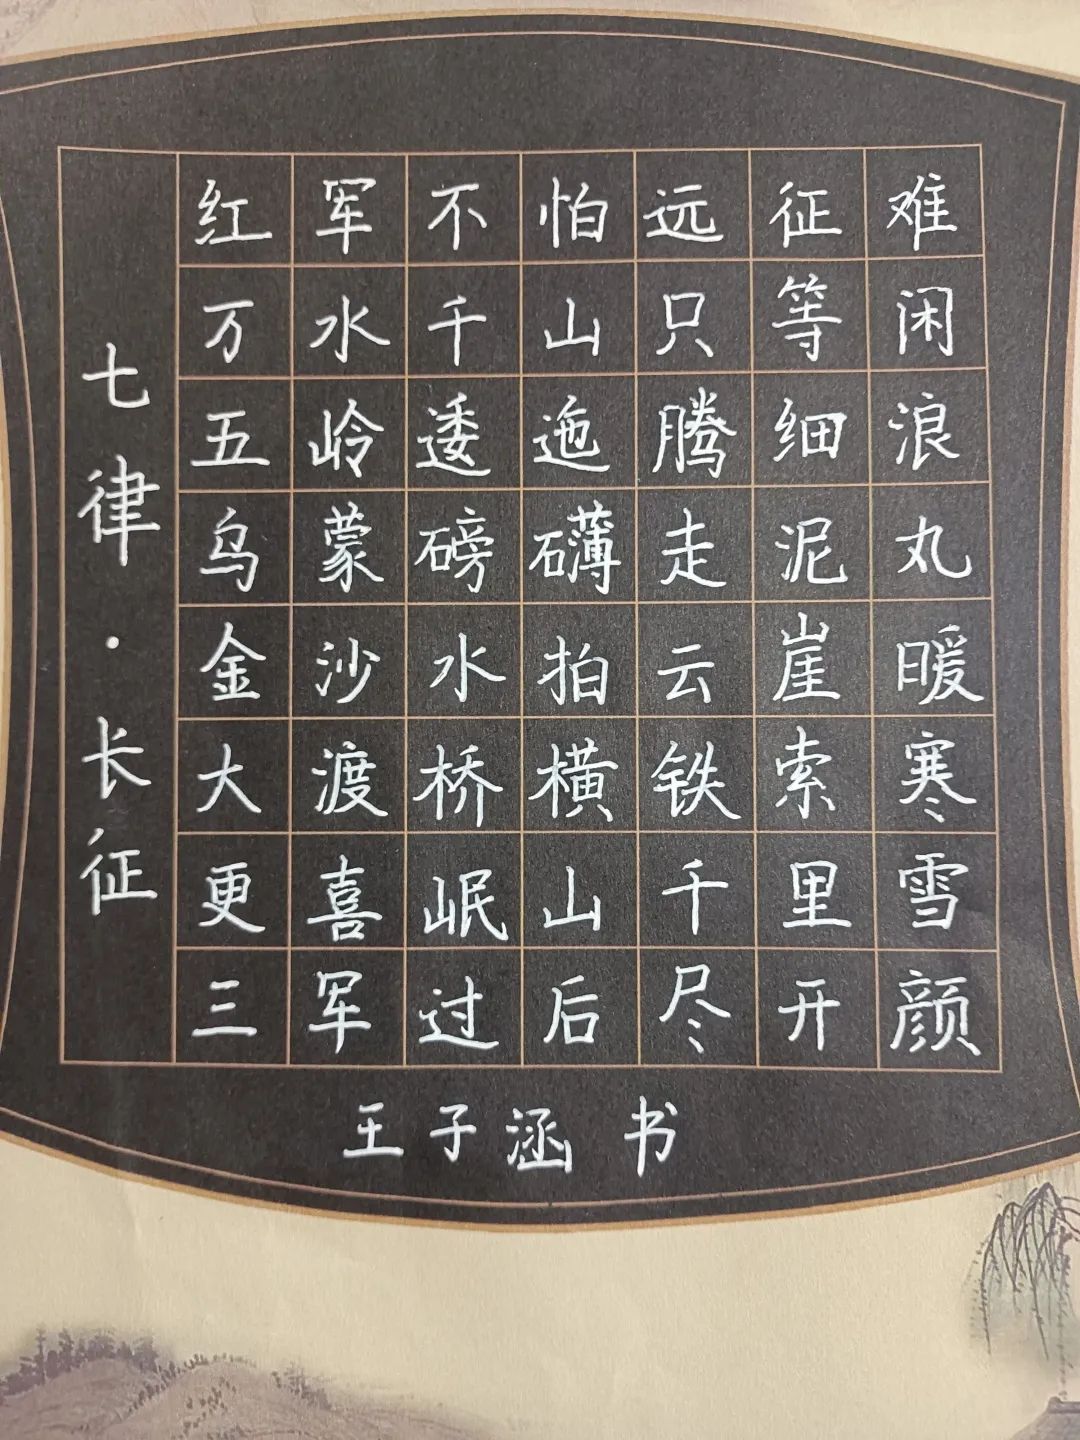 七律·长征
红军不怕远征难
万水千山只等闲
五岭逶迤腾细浪
乌蒙磅礴走泥丸
金沙水拍云崖暖
大渡桥横铁索寒
更喜岷山千里雪
三军过后尽开颜
王子涵 书